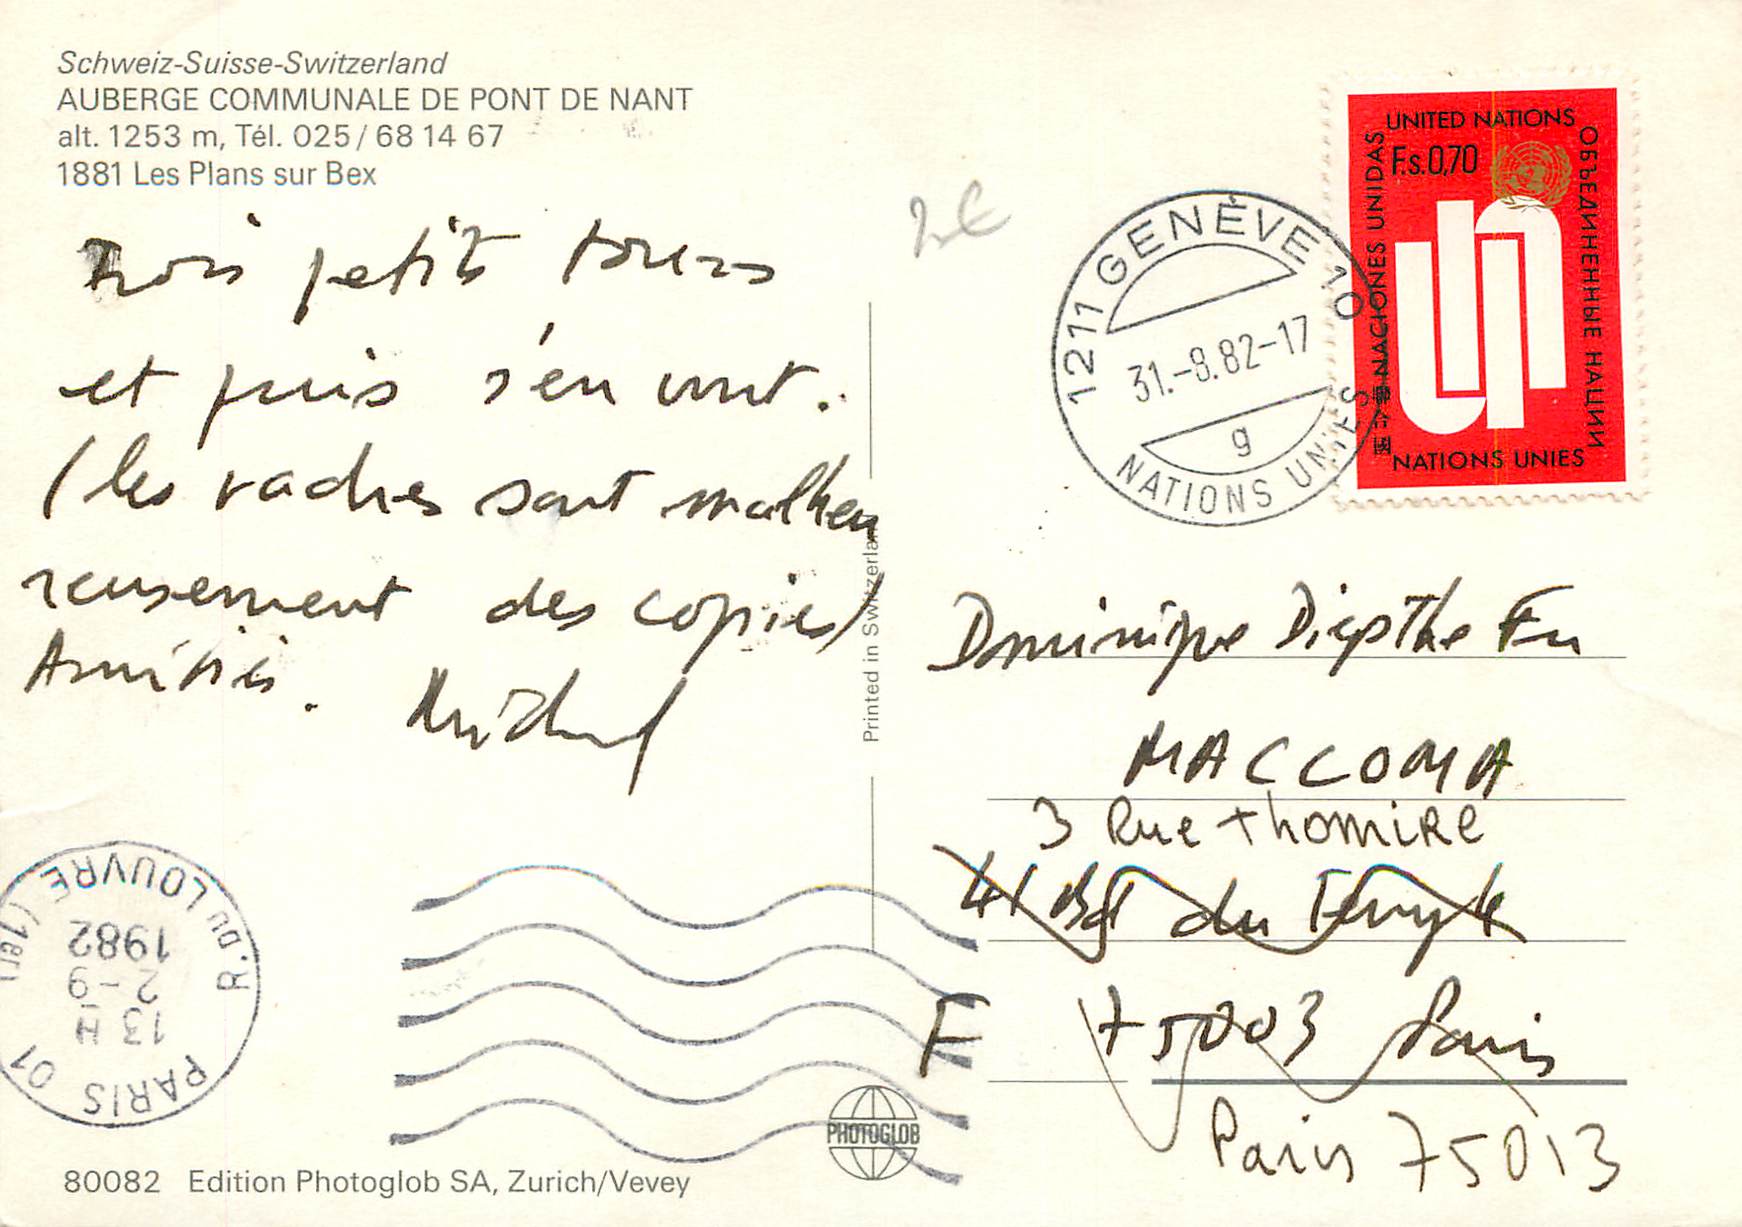 Schweiz-Suisse-Switzerland
AUBERGE COMMUNALE DE PONT DE NANT
alt. 1253 m, Tél. 025/68 14 67
1881 Les Plans sur Bex
Trois petits tours
et puis s'en vont.
(les vaches sont malheu
reusement des copies)
Amitiés.
Michel
2€
1211 GENÈVE 10
31.-8.82-17
g
NATIONS UNIES
UNITED NATIONS
F.s.0,70
NACIONES UNIDAS
ОБЪЕДИНЕННЫЕ НАЦИИ
un
NATIONS UNIES
Printed in Switzerland
Dominique
MACCOMA
3 Rue Thomire
41 Bd du Temple
F 75003 Paris
Paris 75013
PARIS 01
13 H
2-9
1982
R. DU LOUVRE (1er)
PHOTOGLOB
80082 Edition Photoglob SA, Zurich/Vevey